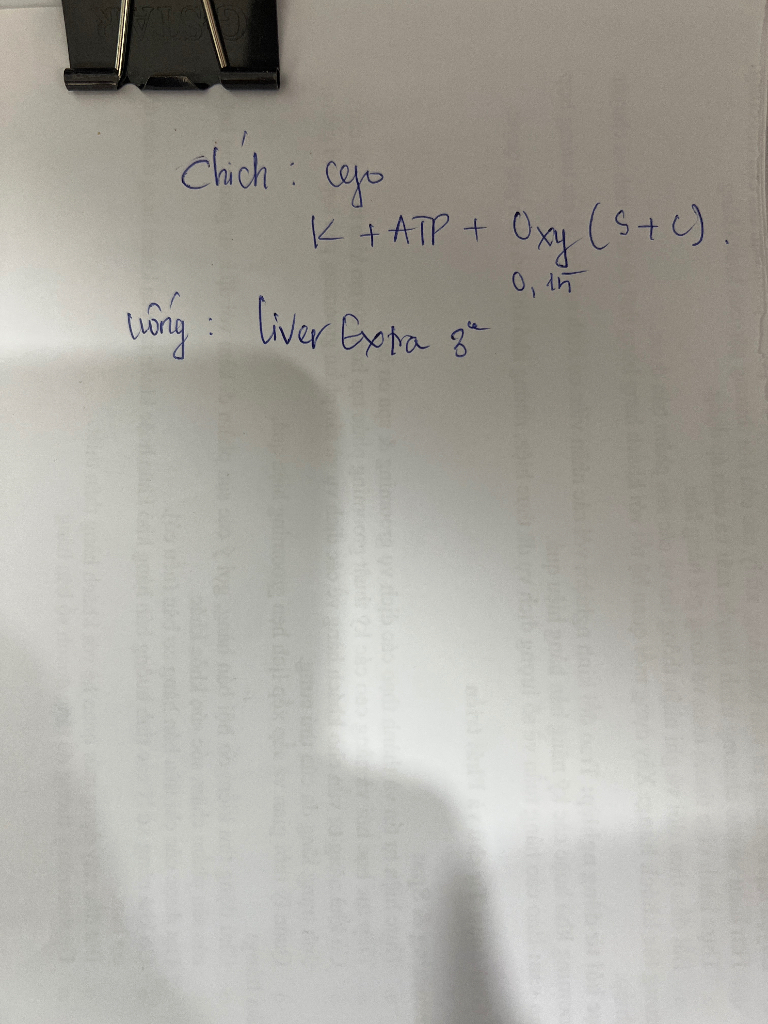 Chích : cejo
K + ATP + Oxy (S + C).
0,1n
Uống : Liver Extra 3ª